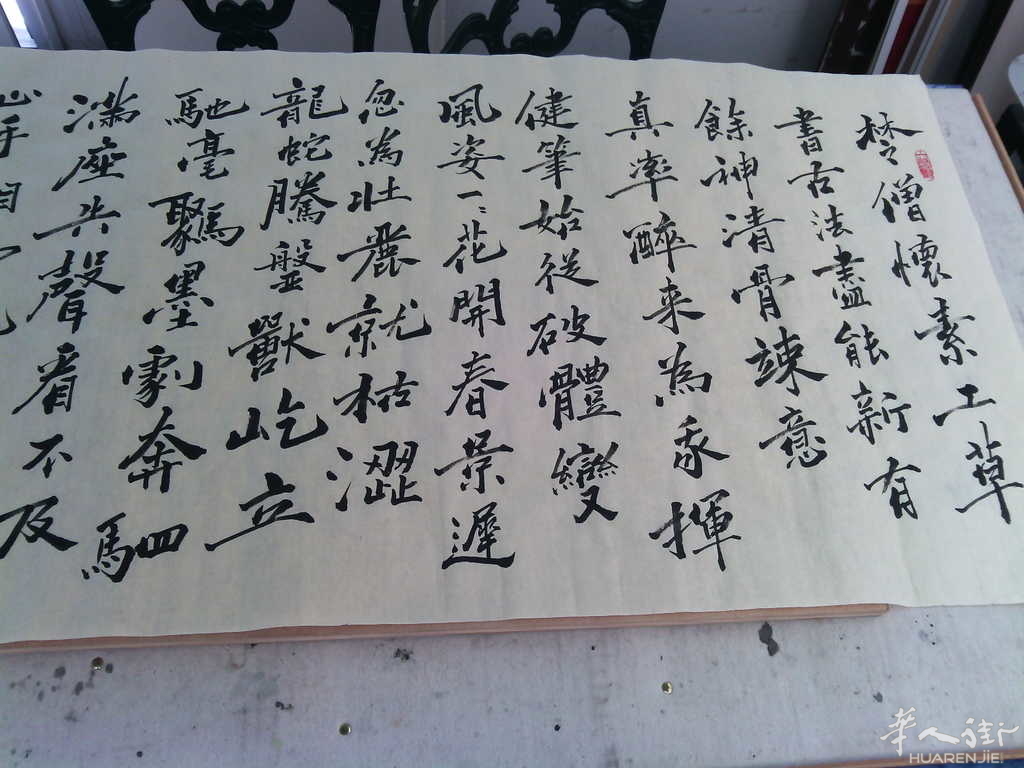 楚僧懷素工草
書古法盡能新有
餘神清骨竦意
真率醉来為我揮
健筆始從破體變
風姿一一花開春景遲
忽為壯麗就枯澀
龍蛇騰盤獸屹立
馳毫驟墨劇奔駟
滿座失聲看不及
心手
華人街
HUARENJIE